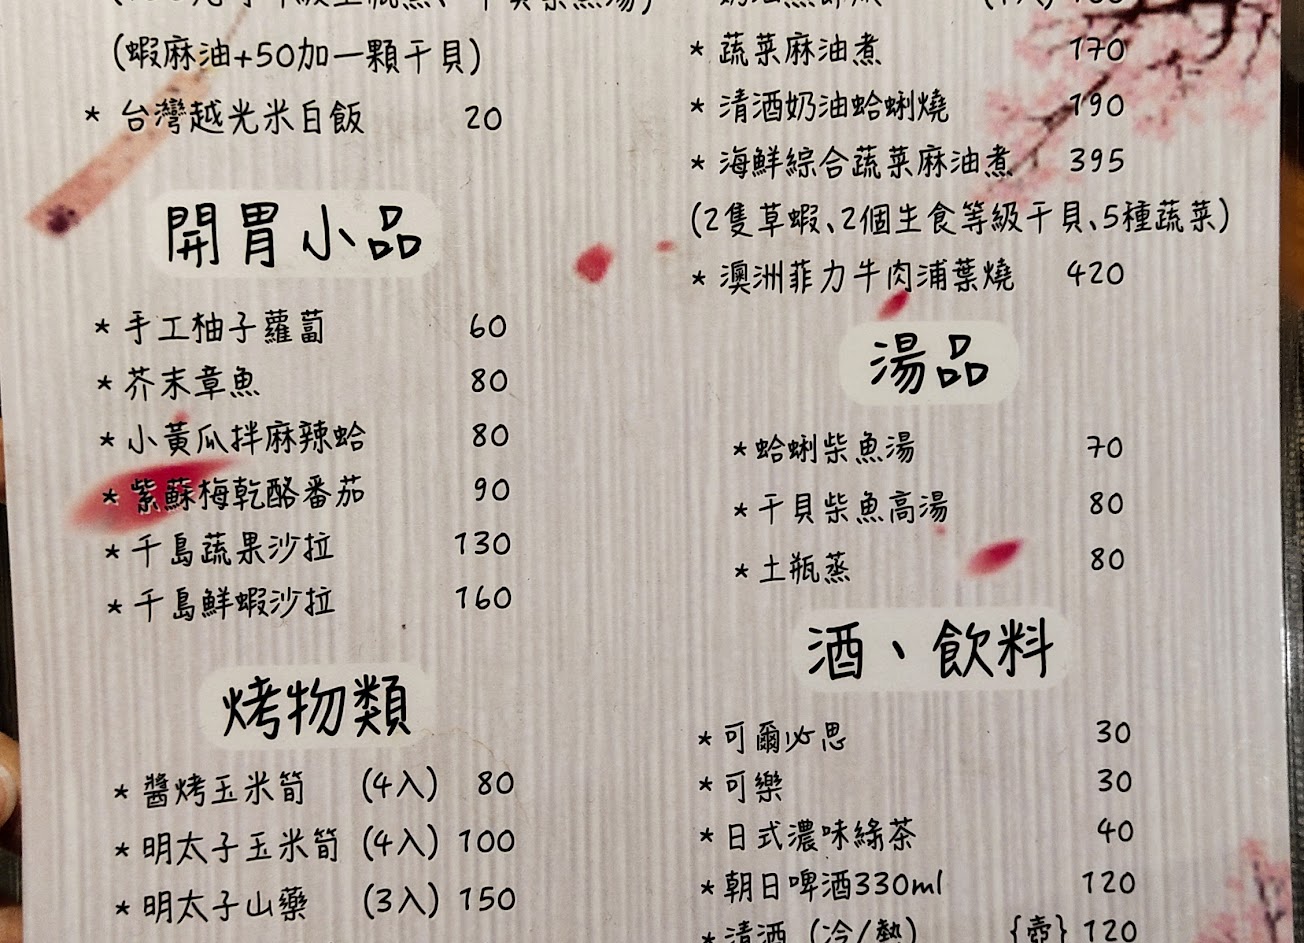 (蝦麻油+50加一顆干貝)
* 台灣越光米白飯 20
開胃小品
* 手工柚子蘿蔔 60
* 芥末章魚 80
* 小黃瓜拌麻辣蛤 80
* 紫蘇梅乾酪番茄 90
* 千島蔬果沙拉 130
* 千島鮮蝦沙拉 160
烤物類
* 醬烤玉米筍 (4入) 80
* 明太子玉米筍 (4入) 100
* 明太子山藥 (3入) 150
* 蔬菜麻油煮 170
* 清酒奶油蛤蜊燒 190
* 海鮮綜合蔬菜麻油煮 395
(2隻草蝦、2個生食等級干貝、5種蔬菜)
* 澳洲菲力牛肉浦葉燒 420
湯品
* 蛤蜊柴魚湯 70
* 干貝柴魚高湯 80
* 土瓶蒸 80
酒、飲料
* 可爾必思 30
* 可樂 30
* 日式濃味綠茶 40
* 朝日啤酒330ml 120
* 清酒 (冷/熱) {壺} 120